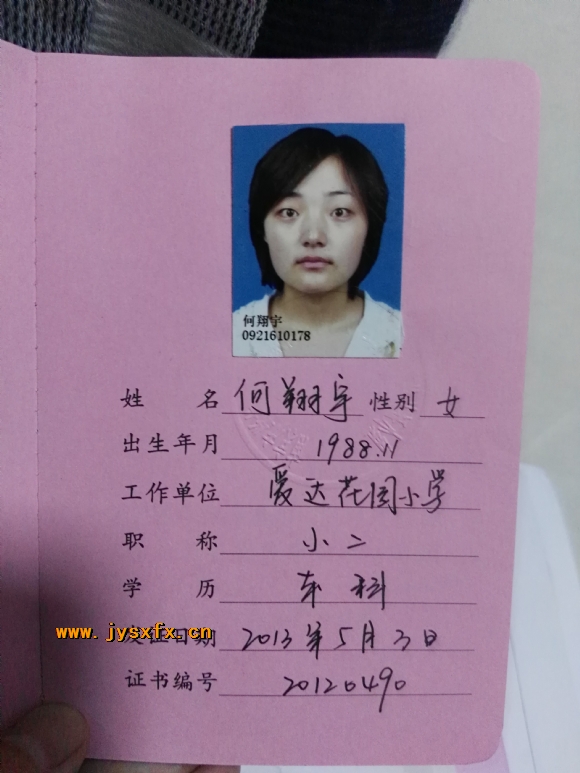 何翔宇
0921610178
姓 名 何翔宇 性别 女
出生年月 1988.11
工作单位 爱达花园小学
职 称 小二
学 历 本科
www.jysxfx.cn
发证日期 2013年5月3日
证书编号 20120490